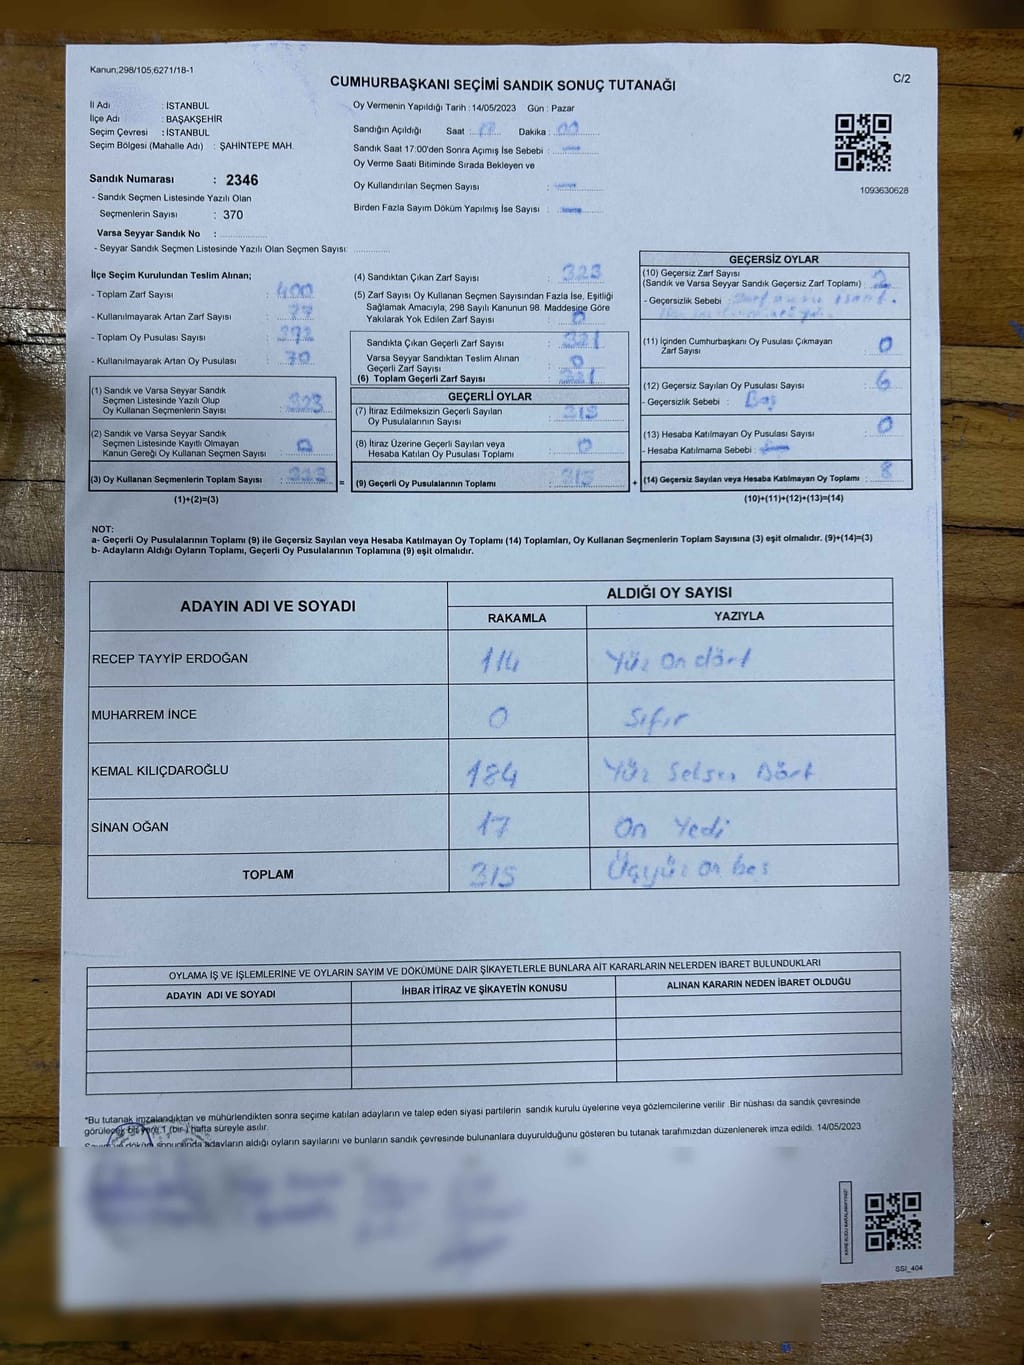 Kanun;298/105,6271/18-1
CUMHURBAŞKANI SEÇİMİ SANDIK SONUÇ TUTANAĞI
C/2
İl Adı : İSTANBUL
İlçe Adı : BAŞAKŞEHİR
Seçim Çevresi : İSTANBUL
Seçim Bölgesi (Mahalle Adı) : ŞAHİNTEPE MAH.
Sandık Numarası : 2346
- Sandık Seçmen Listesinde Yazılı Olan
Seçmenlerin Sayısı : 370
Varsa Seyyar Sandık No :
- Seyyar Sandık Seçmen Listesinde Yazılı Olan Seçmen Sayısı:
Oy Vermenin Yapıldığı Tarih : 14/05/2023 Gün : Pazar
Sandığın Açıldığı Saat : 17 Dakika : 00
Sandık Saat 17:00'den Sonra Açımış İse Sebebi : —
Oy Verme Saati Bitiminde Sırada Bekleyen ve
Oy Kullandırılan Seçmen Sayısı : —
Birden Fazla Sayım Döküm Yapılmış İse Sayısı : —
1093630628
İlçe Seçim Kurulundan Teslim Alınan;
- Toplam Zarf Sayısı : 400
- Kullanılmayarak Artan Zarf Sayısı : 77
- Toplam Oy Pusulası Sayısı :
- Kullanılmayarak Artan Oy Pusulası : 70
(1) Sandık ve Varsa Seyyar Sandık
Seçmen Listesinde Yazılı Olup
Oy Kullanan Seçmenlerin Sayısı : 323
(2) Sandık ve Varsa Seyyar Sandık
Seçmen Listesinde Kayıtlı Olmayan
Kanun Gereği Oy Kullanan Seçmen Sayısı : 0
(3) Oy Kullanan Seçmenlerin Toplam Sayısı : 323
(1)+(2)=(3)
(4) Sandıktan Çıkan Zarf Sayısı : 323
(5) Zarf Sayısı Oy Kullanan Seçmen Sayısından Fazla İse, Eşitliği
Sağlamak Amacıyla, 298 Sayılı Kanunun 98. Maddesine Göre
Yakılarak Yok Edilen Zarf Sayısı : 0
Sandıkta Çıkan Geçerli Zarf Sayısı : 321
Varsa Seyyar Sandıktan Teslim Alınan
Geçerli Zarf Sayısı : 0
(6) Toplam Geçerli Zarf Sayısı : 321
GEÇERLİ OYLAR
(7) İtiraz Edilmeksizin Geçerli Sayılan
Oy Pusulalarının Sayısı : 315
(8) İtiraz Üzerine Geçerli Sayılan veya
Hesaba Katılan Oy Pusulası Toplamı : 0
(9) Geçerli Oy Pusulalarının Toplamı : 315
GEÇERSİZ OYLAR
(10) Geçersiz Zarf Sayısı
(Sandık ve Varsa Seyyar Sandık Geçersiz Zarf Toplamı) : 2
- Geçersizlik Sebebi : Zarf
(11) İçinden Cumhurbaşkanı Oy Pusulası Çıkmayan
Zarf Sayısı : 0
(12) Geçersiz Sayılan Oy Pusulası Sayısı : 6
- Geçersizlik Sebebi : Boş
(13) Hesaba Katılmayan Oy Pusulası Sayısı : 0
- Hesaba Katılmama Sebebi : —
(14) Geçersiz Sayılan veya Hesaba Katılmayan Oy Toplamı : 8
(10)+(11)+(12)+(13)=(14)
NOT:
a- Geçerli Oy Pusulalarının Toplamı (9) ile Geçersiz Sayılan veya Hesaba Katılmayan Oy Toplamı (14) Toplamları, Oy Kullanan Seçmenlerin Toplam Sayısına (3) eşit olmalıdır. (9)+(14)=(3)
b- Adayların Aldığı Oyların Toplamı, Geçerli Oy Pusulalarının Toplamına (9) eşit olmalıdır.
ADAYIN ADI VE SOYADI
ALDIĞI OY SAYISI
RAKAMLA YAZIYLA
RECEP TAYYİP ERDOĞAN 114 Yüz on dört
MUHARREM İNCE 0 Sıfır
KEMAL KILIÇDAROĞLU 184 Yüz Seksen Dört
SİNAN OĞAN 17 On Yedi
TOPLAM 315 Üçyüz on beş
OYLAMA İŞ VE İŞLEMLERİNE VE OYLARIN SAYIM VE DÖKÜMÜNE DAİR ŞİKAYETLERLE BUNLARA AİT KARARLARIN NELERDEN İBARET BULUNDUKLARI
ADAYIN ADI VE SOYADI İHBAR İTİRAZ VE ŞİKAYETİN KONUSU ALINAN KARARIN NEDEN İBARET OLDUĞU
*Bu tutanak imzalandıktan ve mühürlendikten sonra seçime katılan adayların ve talep eden siyasi partilerin sandık kurulu üyelerine veya gözlemcilerine verilir .Bir nüshası da sandık çevresinde
görülecek bir yere 1 (bir ) hafta süreyle asılır.
Sayım ve döküm sonucunda adayların aldığı oyların sayılarını ve bunların sandık çevresinde bulunanlara duyurulduğunu gösteren bu tutanak tarafımızdan düzenlenerek imza edildi. 14/05/2023
SSI_404